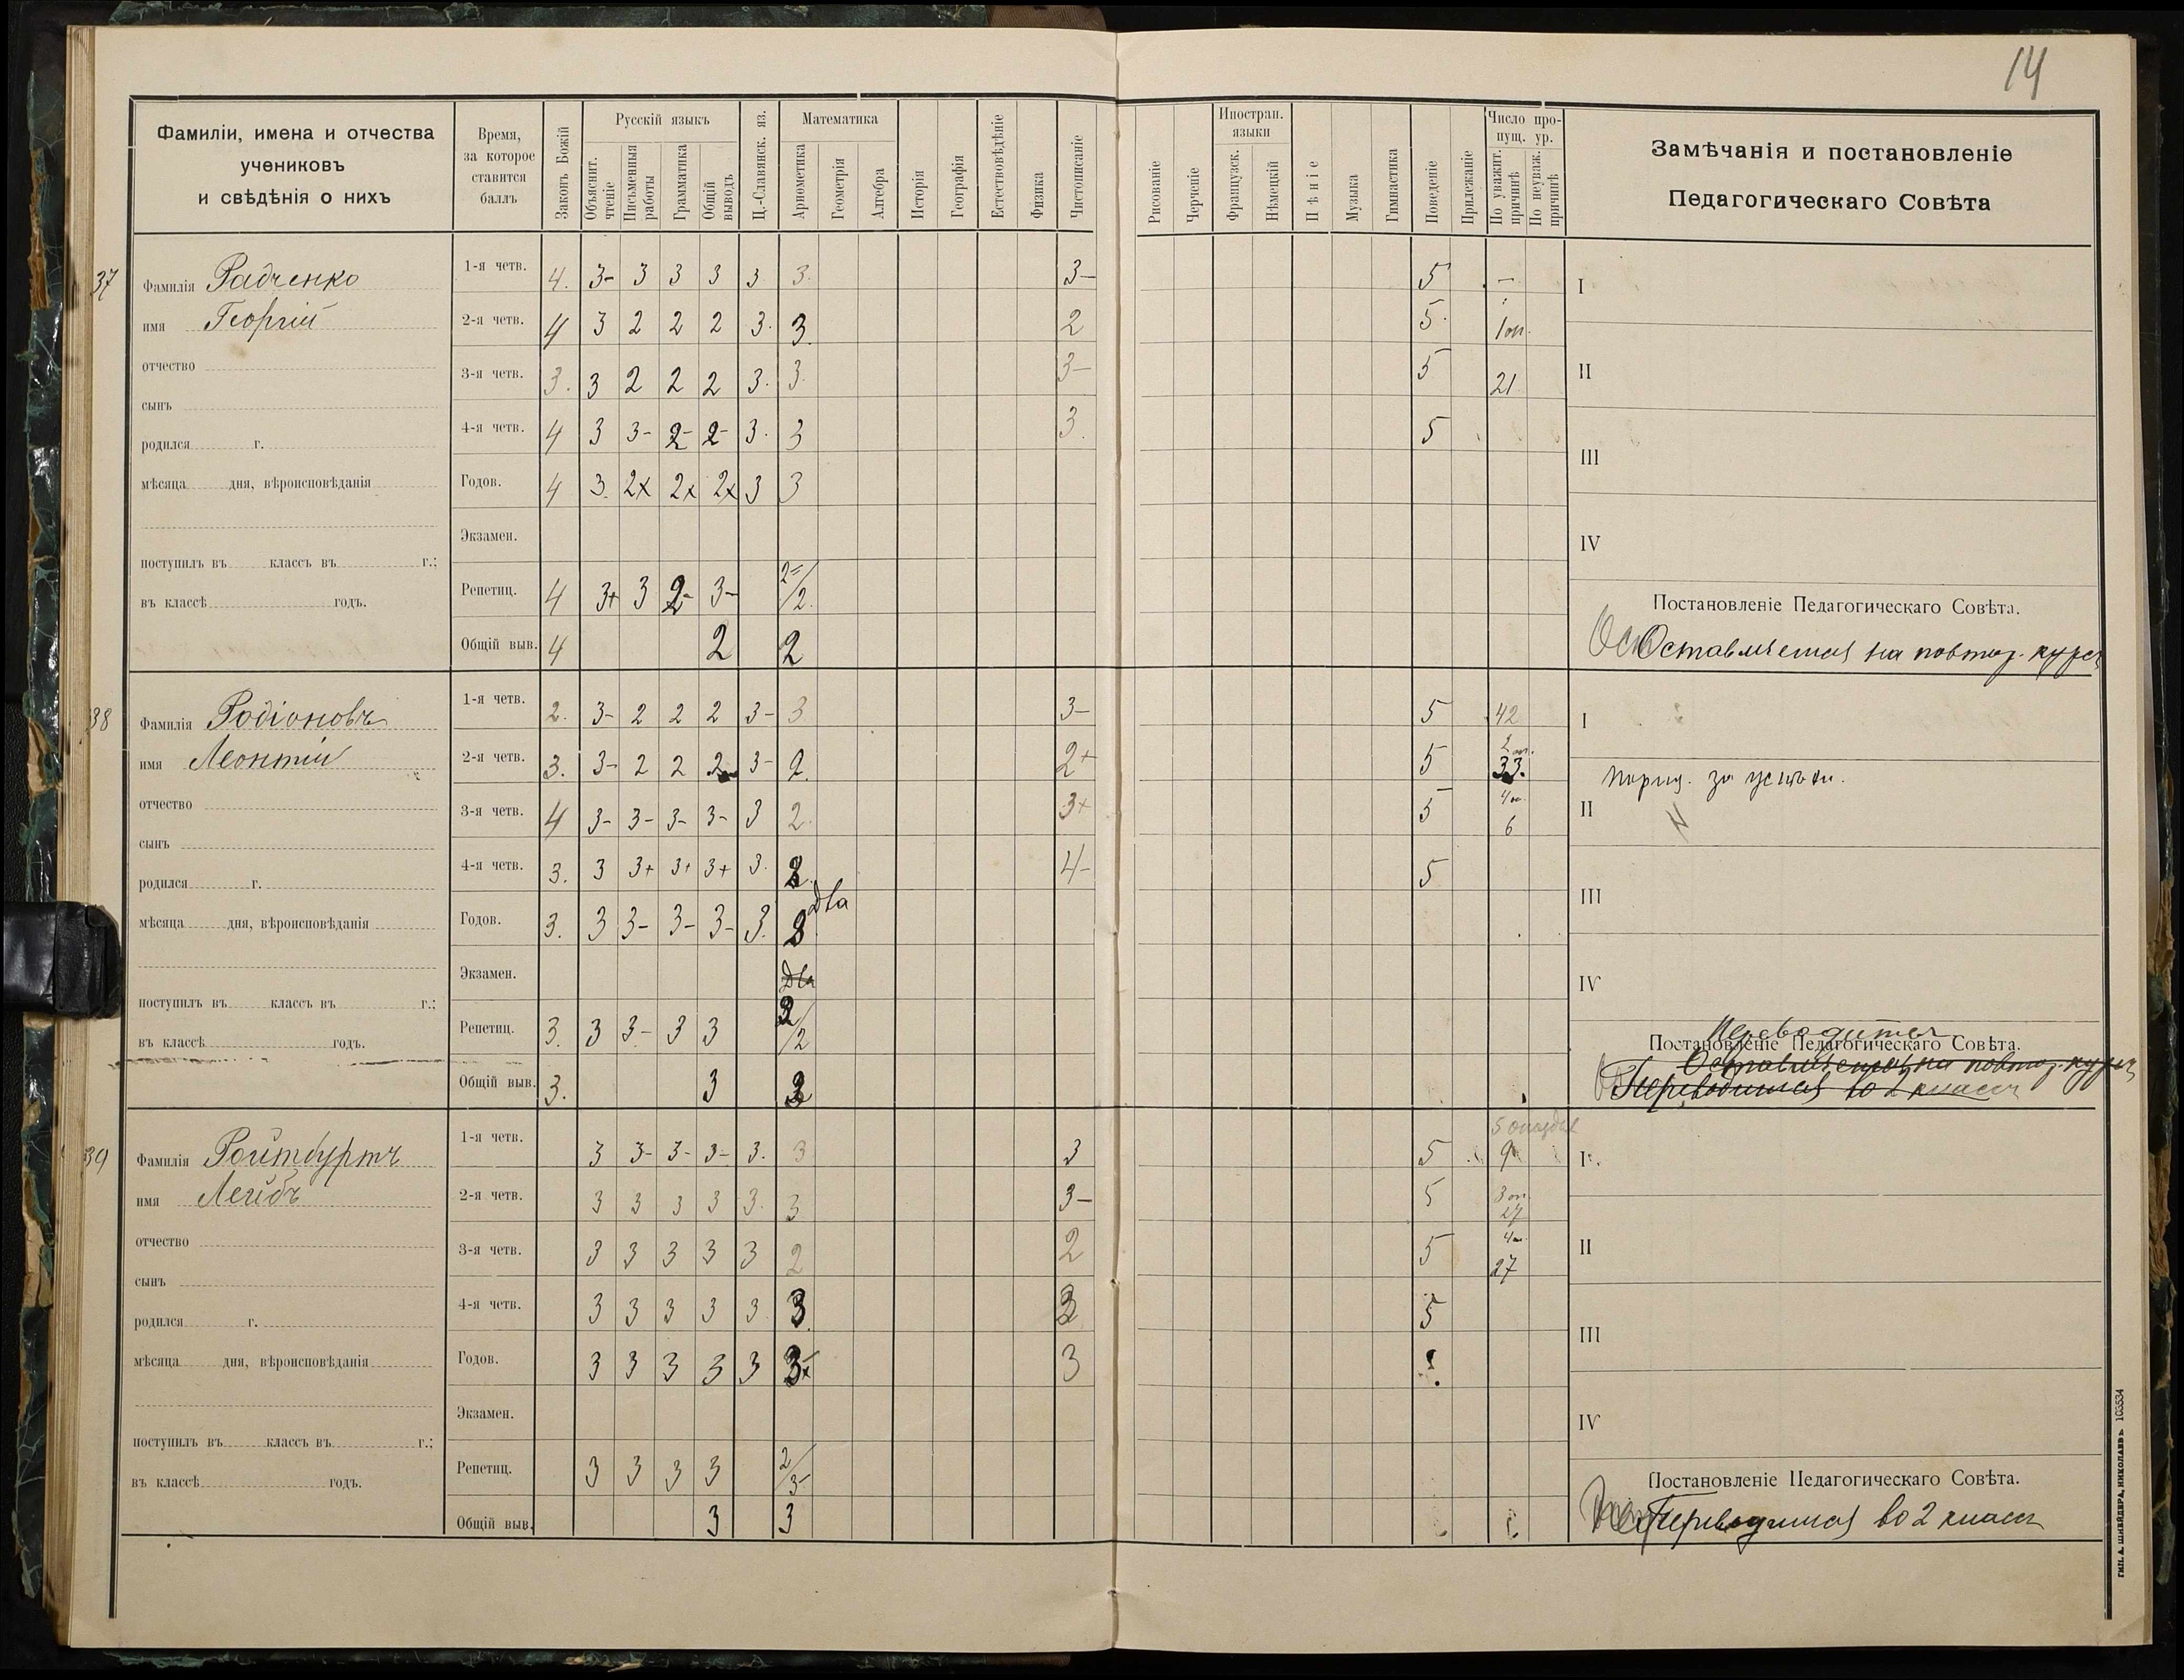 14
Фамиліи, имена и отчества учениковъ и свѣдѣнія о нихъ
Время, за которое ставится баллъ
Законъ Божій
Русскій языкъ
Объяснит. чтеніе
Письменныя работы
Грамматика
Общій выводъ
Ц.-Славянск. яз.
Математика
Ариѳметика
Геометрія
Алгебра
Исторія
Географія
Естествовѣдѣніе
Физика
Чистописаніе
Рисованіе
Черченіе
Иностран. языки
Французск.
Нѣмецкій
Пѣніе
Музыка
Гимнастика
Поведеніе
Прилежаніе
Число пропущ. ур.
По уважит. причинѣ
По неуваж. причинѣ
Замѣчанія и постановленіе Педагогическаго Совѣта
37
Фамилія Радченко
имя Георгій
отчество
сынъ
родился г.
мѣсяца дня, вѣроисповѣданія
поступилъ въ классъ въ г.;
въ классѣ годъ.
1-я четв. 4. 3- 3 3 3 3 3. 3- 5 -
2-я четв. 4 3 2 2 2 3. 3. 2 5. 1 оп.
3-я четв. 3. 3 2 2 2 3. 3. 3- 5 21
4-я четв. 4 3 3- 2- 2- 3. 3 3. 5
Годов. 4 3. 2х 2х 2х 3 3
Экзамен.
Репетиц. 4 3+ 3 2- 3- 2=/2.
Общій выв. 4 2 2
I
II
III
IV
Постановленіе Педагогическаго Совѣта.
Ост Оставляется на повтор. курсъ
38
Фамилія Родіоновъ
имя Леонтій
отчество
сынъ
родился г.
мѣсяца дня, вѣроисповѣданія
поступилъ въ классъ въ г.;
въ классѣ годъ.
1-я четв. 2. 3- 2 2 2 3- 3 3- 5 42
2-я четв. 3. 3- 2 2 2 3- 2. 2+ 5 2 оп. 33.
3-я четв. 4 3- 3- 3- 3- 3 2. 3+ 5 4 оп. 6
4-я четв. 3. 3 3+ 3+ 3+ 3. 4- 5
Годов. 3. 3 3- 3- 3- 3. Два
Экзамен. Два
Репетиц. 3. 3 3- 3 3 /2
Общій выв. 3. 3
I
II
III
IV
Постановленіе Педагогическаго Совѣта.
Переводится
Оставляется на повтор. курсъ
Переводится во 2 классъ
39
Фамилія Ройтбуртъ
имя Лейбъ
отчество
сынъ
родился г.
мѣсяца дня, вѣроисповѣданія
поступилъ въ классъ въ г.;
въ классѣ годъ.
1-я четв. 3 3- 3- 3- 3. 3 3 5 9
2-я четв. 3 3 3 3 3. 3 3- 5 3 оп. 27
3-я четв. 3 3 3 3 3 2 2 5 4 оп. 27
4-я четв. 3 3 3 3 3 3. 5
Годов. 3 3 3 3 3 3
Экзамен.
Репетиц. 3 3 3 3 2/3-
Общій выв. 3 3
I
II
III
IV
Постановленіе Педагогическаго Совѣта.
Переводится во 2 классъ
ТИП. А. ШНЕЙДЕРА, НИКОЛАЕВЪ 103534